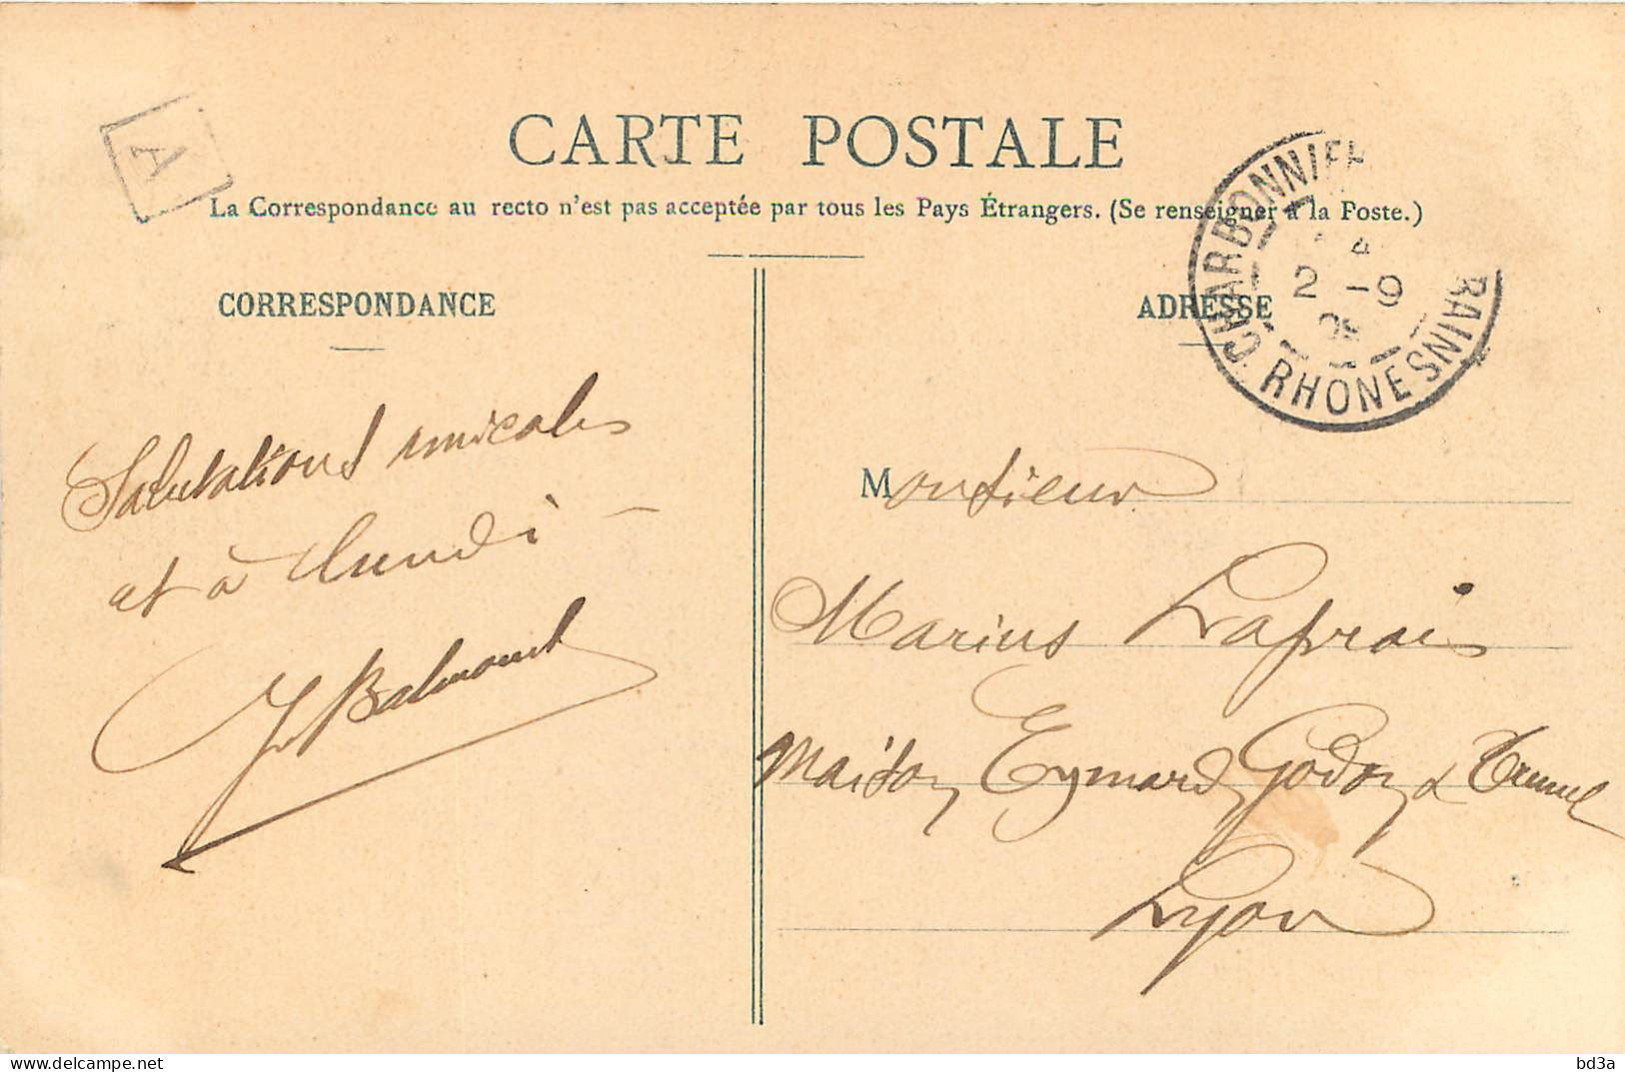 A
CARTE POSTALE
La Correspondance au recto n'est pas acceptée par tous les Pays Étrangers. (Se renseigner à la Poste.)
CHARBONNIE
BAINS
RHONE
2 -9
CORRESPONDANCE
ADRESSE
Salutations amicales
et à lundi –
J. Balmont
Monsieur
Marius Lafrais
Maison Eymard, Godon &
Lyon
delcampe.net
bd3a